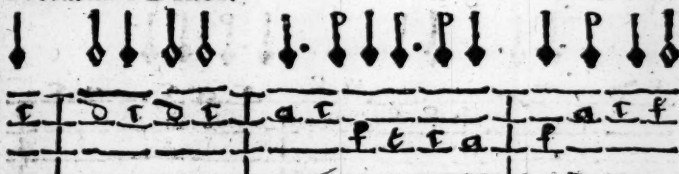 r d r d r a r a r f
f e r a f